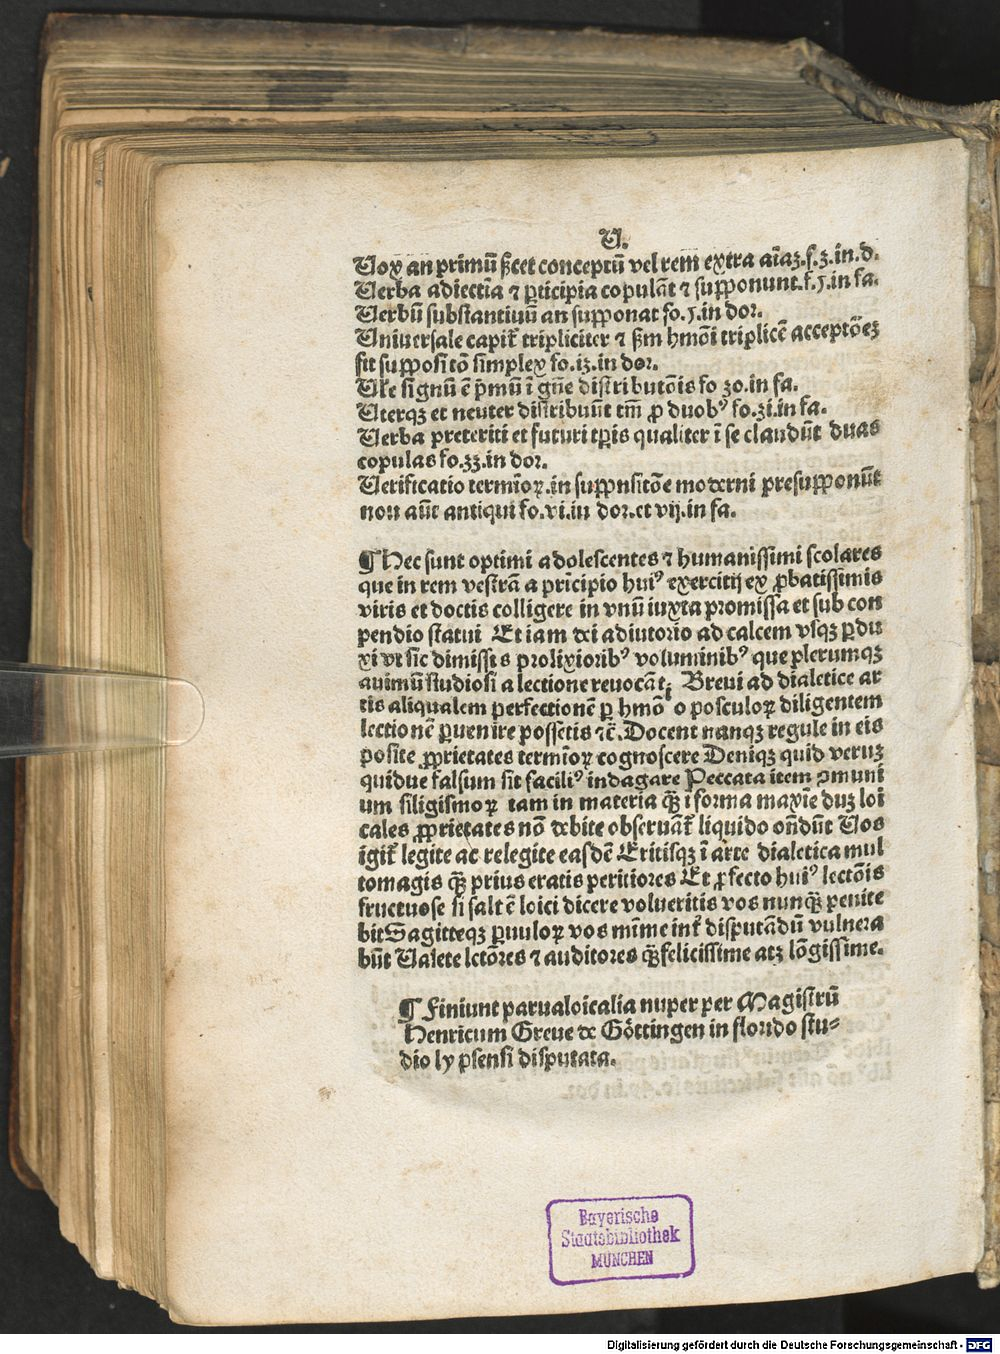 U.
Vox an primū ſꝫcet conceptū vel rem extra aīaꝫ.f.3.in.d.
Verba adiectīa ⁊ ꝑticipia copulāt ⁊ ſupponunt.f.5.in fa.
Verbū ſubſtantiuū an ſupponat fo.5.in dor.
Uniuerſale capiť tripliciter ⁊ ſꝫm hmōi triplicē acceptōeꝫ
fit ſuppoſitō ſimplex fo.iꝫ.in dor.
Vłe ſignū ē p̄mū ī gn̄e diſtributōnis fo 30.in fa.
Uterqꝫ et neuter diſtribuūt tm̄ ꝓ duobꝰ fo.3i.in fa.
Verba preteriti et futuri tꝑis qualiter ī ſe claudūt duas
copulas fo.33.in dor.
Verificatio termīoꝝ.in ſuppnſitōe moderni preſupponūt
non aūt antiqui fo.vi.in dor.et vij.in fa.

¶ Hec ſunt optimi adoleſcentes ⁊ humaniſſimi ſcolares
que in rem veſtrā a prīcipio huiꝰ exercitij ex ꝓbatiſſimis
viris et doctis colligere in vnū iuxta promiſſa et ſub con
pendio ſtatui Et iam dei adiutorio ad calcem vſqꝫ ꝑdu
xi vt ſic dimiſſis prolixioribꝰ voluminibꝰ que plerumqꝫ
auimū ſtudioſi a lectione reuocāt; Breui ad dialetice ar
tis aliqualem perfectionē ꝑ hmōi o poſculoꝝ diligentem
lectionē ꝑuenire poſſetis ⁊c̄. Docent nanqꝫ regule in eis
poſite ꝓprietates termīoꝝ cognoſcere Deniqꝫ quid veruꝫ
quidue falſum ſit faciliꝰ indagare Peccata item ꝯmuni
um ſiligiſmoꝝ tam in materia qꝫ̄ ī forma maxīe duꝫ loi
cales ꝓprietates nō debite obſeruāť liquido on̄dūt Vos
igiť legite ac relegite eaſdē Eritiſqꝫ ī arte dialetica mul
tomagis qꝫ̄ prius eratis peritiores Et ꝓfecto huiꝰ lectōis
fructuoſe ſi ſaltē loici dicere volueritis vos nunqꝫ̄ penite
bit Sagitteqꝫ ꝑuuloꝝ vos mīme inť diſputādū vulnera
būt Valete lctōres ⁊ auditores qꝫ̄felicíſſime atꝫ lōgiſſime.

¶ Finiunt parualoicalia nuper per Magiſtrū
Henricum Greue de Göttingen in florido ſtu⸗
dio lypſenſi diſputata.

Bayerische
Staatsbibliothek
MÜNCHEN

Digitalisierung gefördert durch die Deutsche Forschungsgemeinschaft - DFG